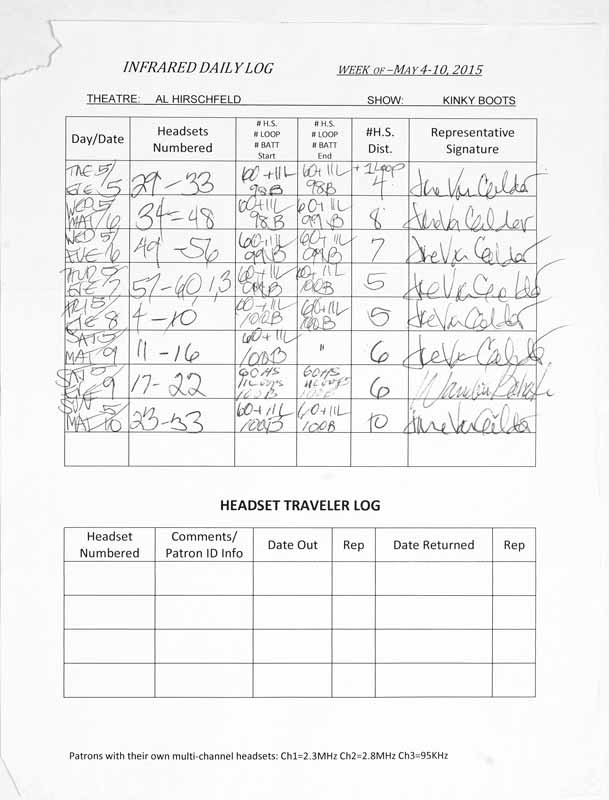 INFRARED DAILY LOG WEEK OF –MAY 4-10, 2015
THEATRE: AL HIRSCHFELD SHOW: KINKY BOOTS
Day/Date Headsets Numbered # H.S. # LOOP # BATT Start # H.S. # LOOP # BATT End #H.S. Dist. Representative Signature
TUE 5/ EVE 5 29 – 33 60 + 11L 98B 60 + 11L 98B + 1 Loop 4
WED 5/ MAT 6 34 – 48 60 + 11L 98B 60 + 11L 99B 8
WED 5/ EVE 6 49 – 56 60 + 11L 99B 60 + 11L 99B 7
THUR 5/ EVE 7 57 – 60 1,3 60 + 11L 100B 60 + 11L 100B 5
FRI 5/ EVE 8 4 – 10 60 + 11L 100B 60 + 11L 100B 5
SAT 5/ MAT 9 11 – 16 60 + 11L 100B " 6
SAT 5/ EVE 9 17 – 22 60 HS 11 Loops 100 B 60 HS 11 Loops 100 B 6
SUN 5/ MAT 10 23 – 33 60 + 11L 100B 60 + 11L 100B 10
HEADSET TRAVELER LOG
Headset Numbered Comments/ Patron ID Info Date Out Rep Date Returned Rep
Patrons with their own multi-channel headsets: Ch1=2.3MHz Ch2=2.8MHz Ch3=95KHz